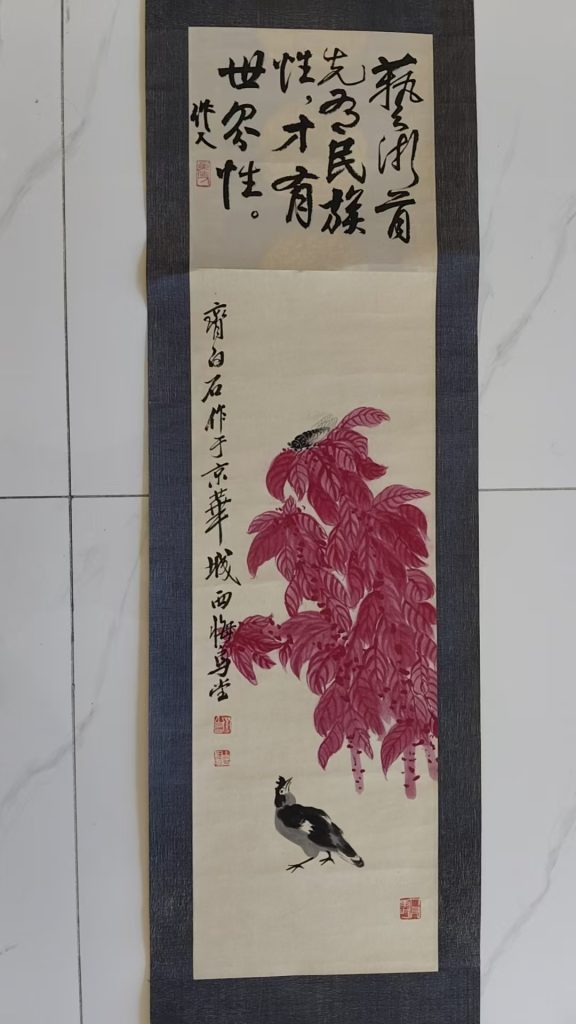 藝術首
先有民族
性，才有
世界性。
作人
齊白石作于京華城西悔烏堂